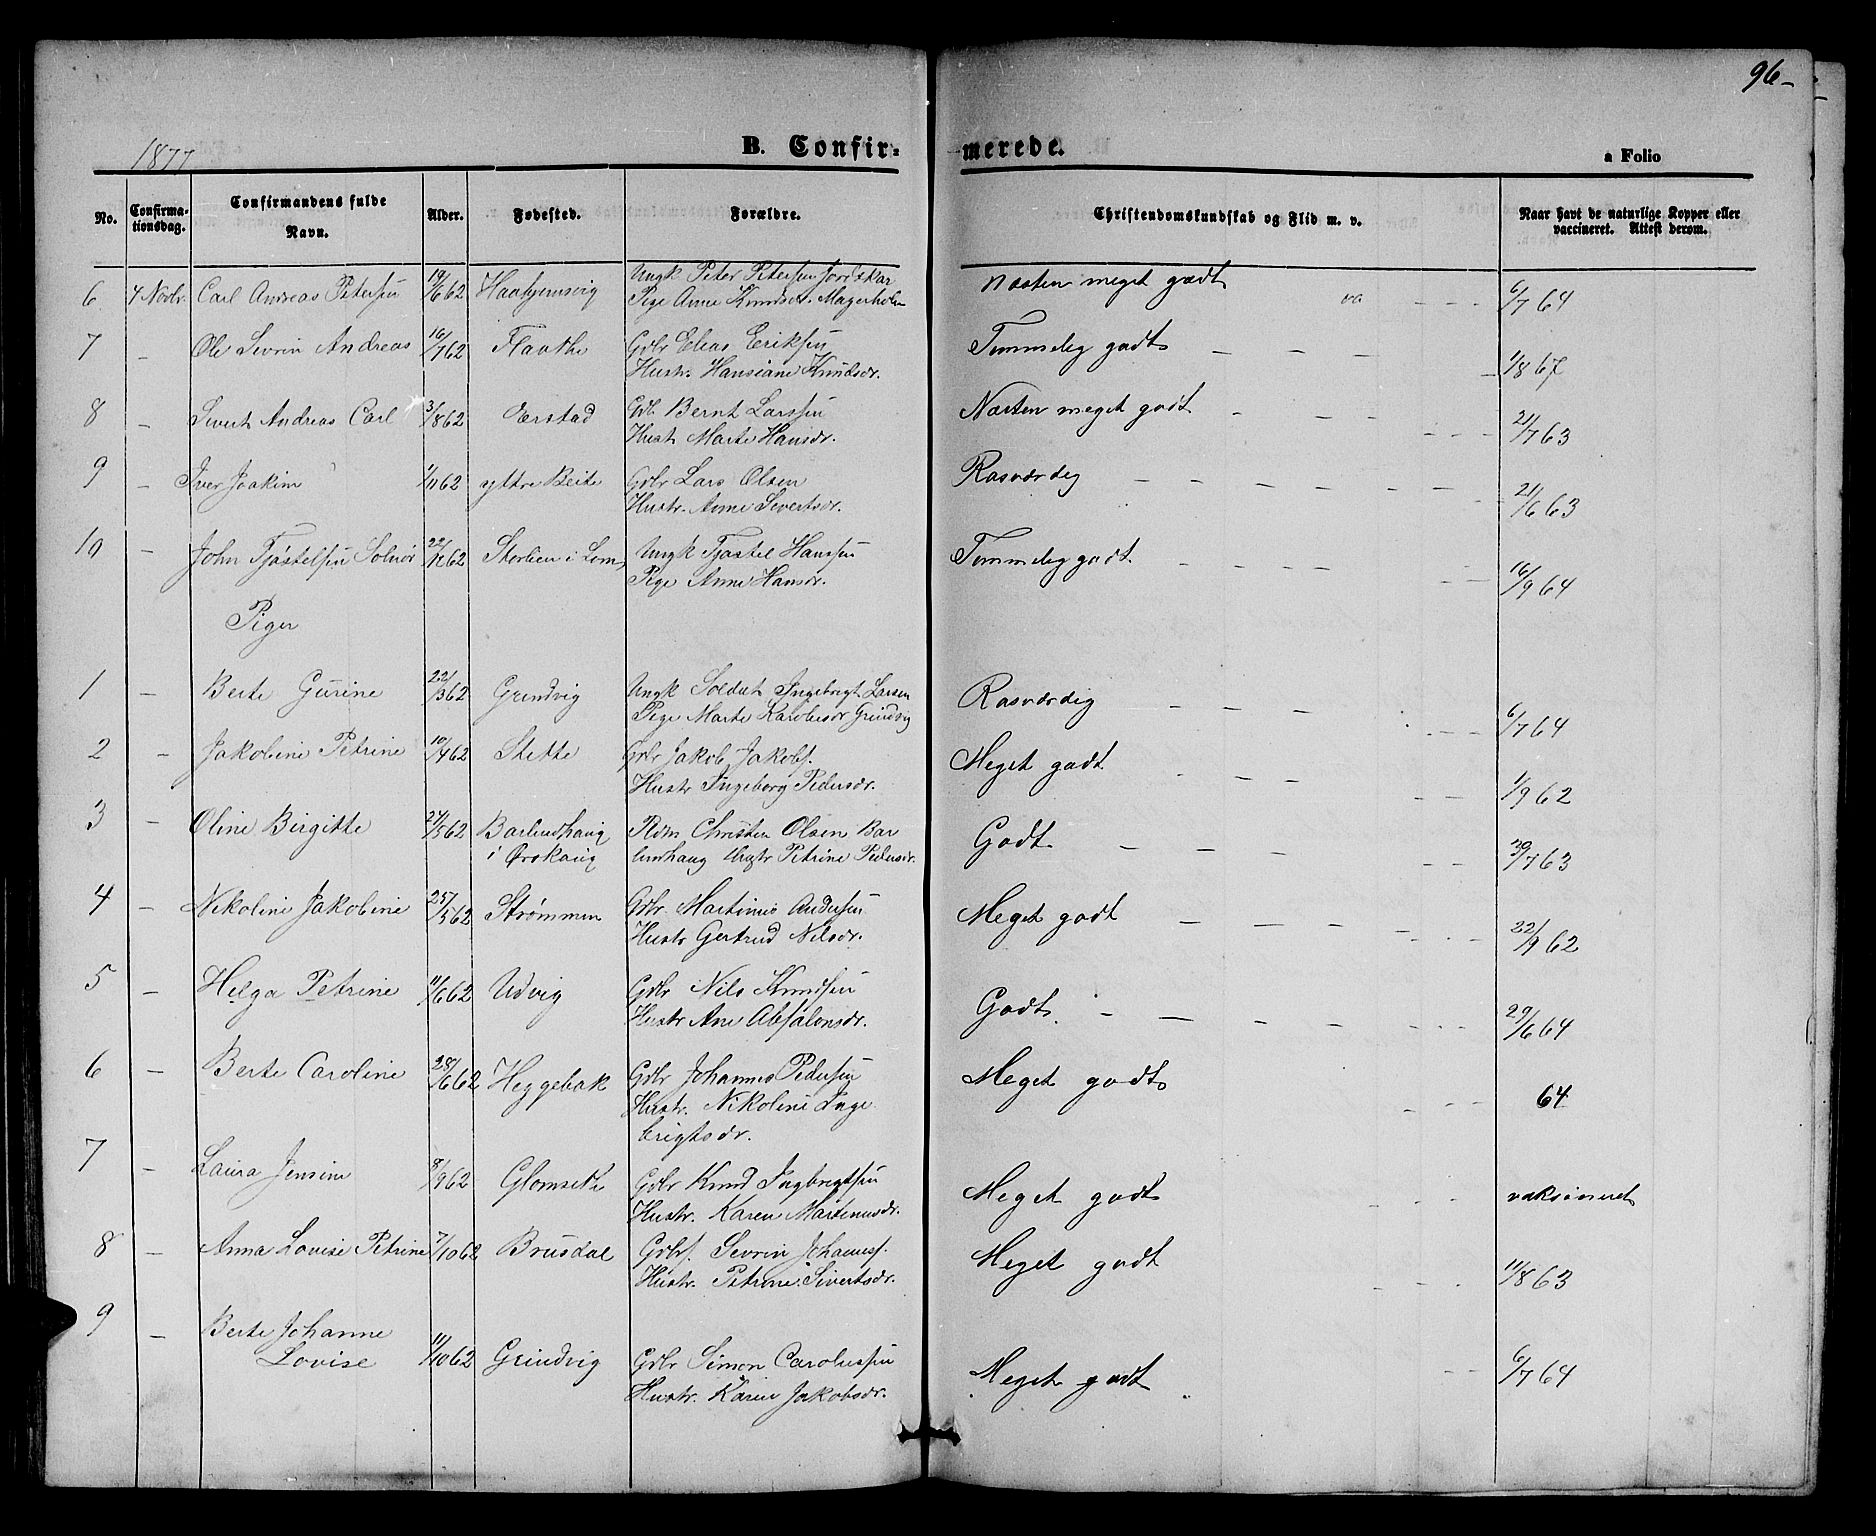 96-
1877
B. Confir-
merede.
a Folio
No.
Confirma-
tionsdag.
Confirmandens fulde
Navn.
Alder.
Fødested.
Forældre.
Christendomskundskab og Flid m. v.
Naar havt de naturlige Kopper eller
vaccineret. Attest derom.
6 4 Novbr. Carl Andreas Petersen 19/6 62 Haahjemsvig Ungk Peter Petersen Jordskar Næsten meget godt 6/7 64
Pige Anne Knudsdr. Magerholm
7 - Ole Sevrin Andreas 16/7 62 Flaathe Gdbr Elias Eriksen Temmelig godt - - - 1/8 67
Hustr. Hansiane Knudsdr.
8 - Sivert Andreas Carl 3/8 62 Ærstad Gdb Bernt Larssen Næsten meget godt - - - 21/7 63
Hustr Marte Hansdr.
9 - Iver Joakim 1/11 62 yttre Beite Gdbr Lars Olsen Rosværdig - - - - - - 21/6 63
Hustr. Anne Sivertsdr.
10 - John Tjøstelsen Solnør 22/12 62 Storlien i Lom Ungk Tjøstel Hanssen Temmelig godt. - - - 16/9 64
Pige Anne Hansdr.
Piger
1 - Berte Gurine 22/3 62 Grindvig Ungk Soldat Ingebrigt Larsen Rosværdig - - - 6/7 64
Pige Marte Karolusdr Grindvig
2 - Jakobine Petrine 10/4 62 Stette Gdbr Jakob Jakobs. Meget godt - - - 1/9 62
Hustr Ingeborg Pedersdr.
3 - Oline Birgitte 24/5 62 Barlindhaug Christen Olsen Bar Godt - - - - 30/7 63
i Ørskaug lindhaug Hustr Petrine Pedersdr.
4 - Nikoline Jakobine 25/5 62 Strømmen Gdbr. Martinus Andersen Meget godt - - - - 22/9 62
Hustr Gertrud Nilsdr.
5 - Helga Petrine 11/6 62 Udvig Gdbr Nils Knudsen Godt. - - - - 29/6 64
Hustr Ane Absalonsdr.
6 - Berte Caroline 28/6 62 Heggebak Gdbr Johannes Pedersen Meget godt 64
Hustr. Nikoline Inge
brigtsdr.
7 - Laura Jensine 8/9 62 Glomseth Gdbr Knud Ingbrigtsen Meget godt vaksineret
Hustr. Karen Martinusdr.
8 - Anna Lovise Petrine 7/10 62 Brusdal Gdbr. Sevrin Johaness. Meget godt 11/8 63
Hustr. Petrine Sivertsdr.
9 - Berte Johanne
Lovise 11/10 62 Grindvig Gdbr Simon Carolussen Meget godt 6/7 64
Hustr. Karen Jakobsdr.